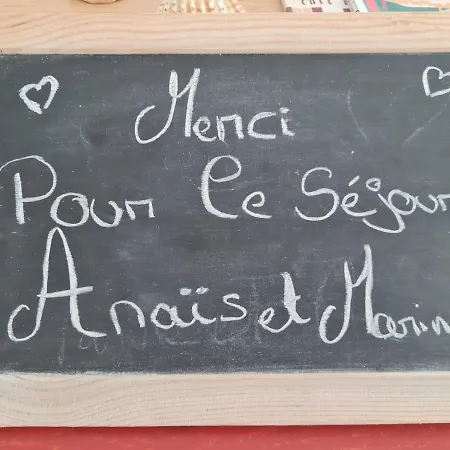 Merci
Pour le séjour
Anaïs et Marin